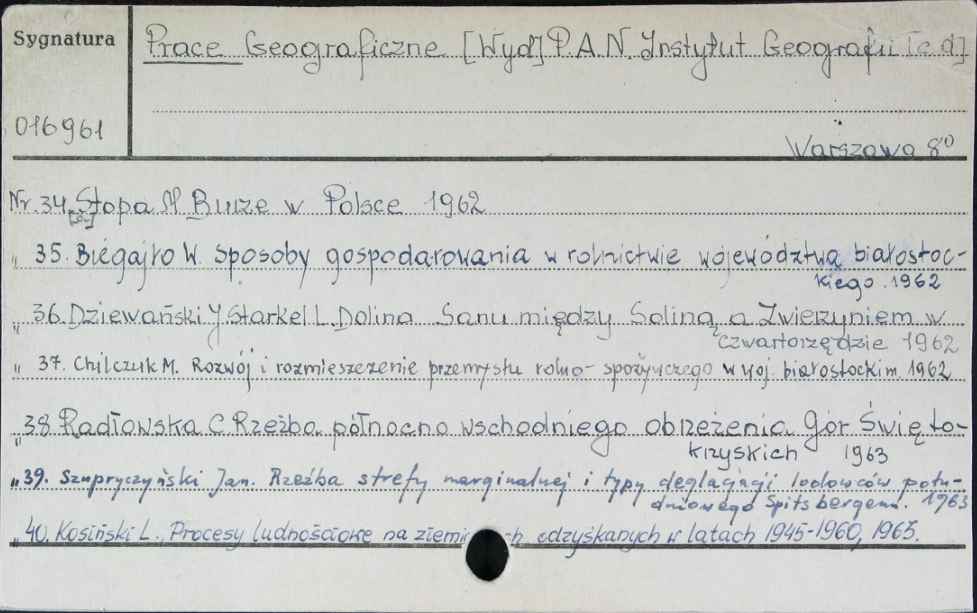 Sygnatura
Prace Geograficzne [Wyd] P.A.N. Instytut Geografii [c.d]
016961
Warszawa 8°
Nr. 34. Stopa M Burze w Polsce 1962
" 35. Biegajło W. Sposoby gospodarowania w rolnictwie województwa białostoc-
kiego. 1962
" 36. Dziewański J Starkel L. Dolina Sanu między Soliną a Zwierzyniem w
czwartorzędzie 1962
" 37. Chilczuk M. Rozwój i rozmieszczenie przemysłu rolno-spożywczego w woj. białostockim 1962
" 38. Radłowska C Rzeźba północno wschodniego obrzeżenia Gór Święto-
krzyskich 1963
" 39. Szupryczyński Jan. Rzeźba strefy marginalnej i typy deglacjacji lodowców połu-
dniowego Spitsbergenu. 1963
" 40. Kosiński L. Procesy ludnościowe na ziemiach odzyskanych w latach 1945-1960, 1963.